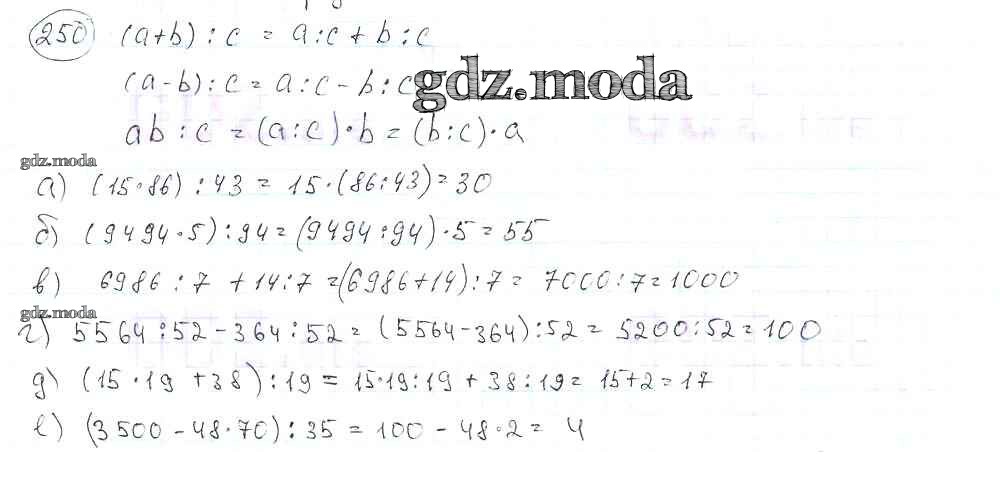 250 (a+b) : c = a:c + b:c
(a-b) : c = a:c - b:c
gdz.moda
ab : c = (a:c)·b = (b:c)·a
gdz.moda
а) (15·86) : 43 = 15·(86:43) = 30
б) (9494·5) : 94 = (9494:94)·5 = 55
в) 6986 : 7 + 14:7 = (6986+14) : 7 = 7000:7 = 1000
gdz.moda
г) 5564:52 - 364:52 = (5564-364):52 = 5200:52 = 100
д) (15·19 + 38) : 19 = 15·19:19 + 38:19 = 15+2 = 17
е) (3500 - 48·70) : 35 = 100 - 48·2 = 4